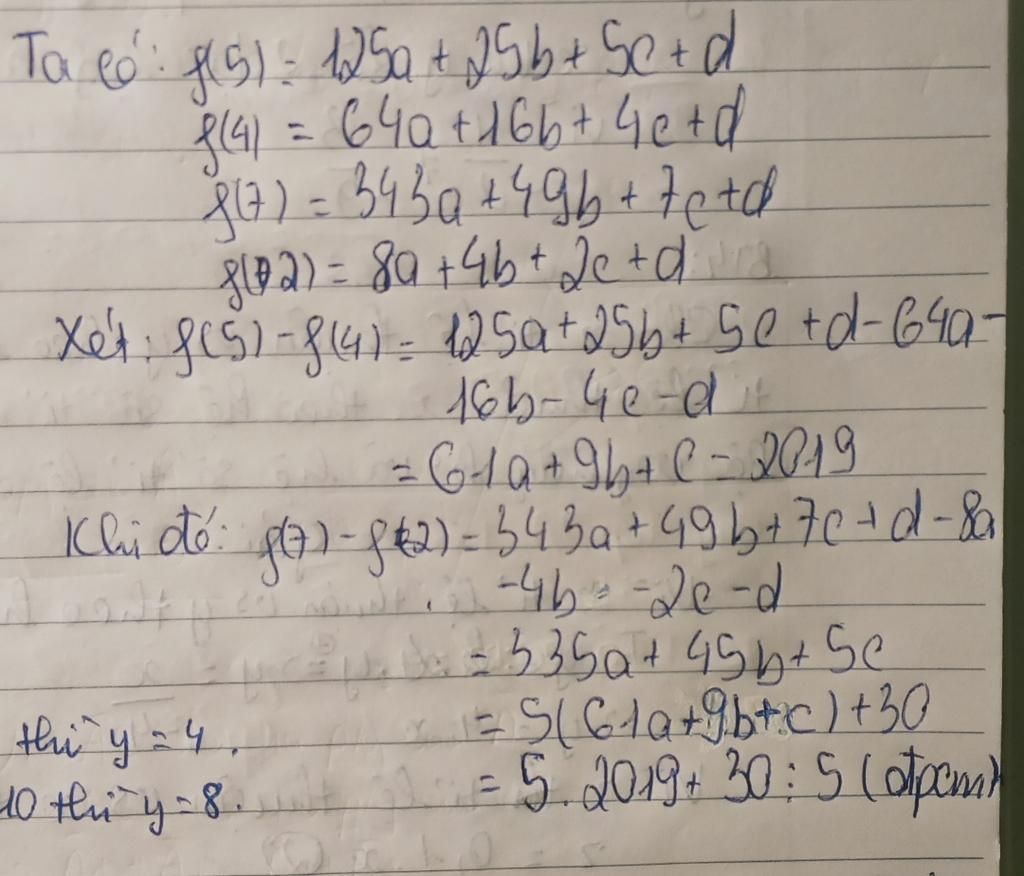 Ta có: f(5) = 125a + 25b + 5c + d
f(4) = 64a + 16b + 4c + d
f(7) = 343a + 49b + 7c + d
f(2) = 8a + 4b + 2c + d
Xét: f(5) - f(4) = 125a + 25b + 5c + d - 64a -
16b - 4c - d
= 61a + 9b + c = 2019
Khi đó: f(7) - f(2) = 343a + 49b + 7c + d - 8a
- 4b - 2c - d
= 335a + 45b + 5c
= 5(61a + 9b + c) + 30
= 5.2019 + 30 : 5 (đpcm)
thì y = 4.
10 thì y = 8.